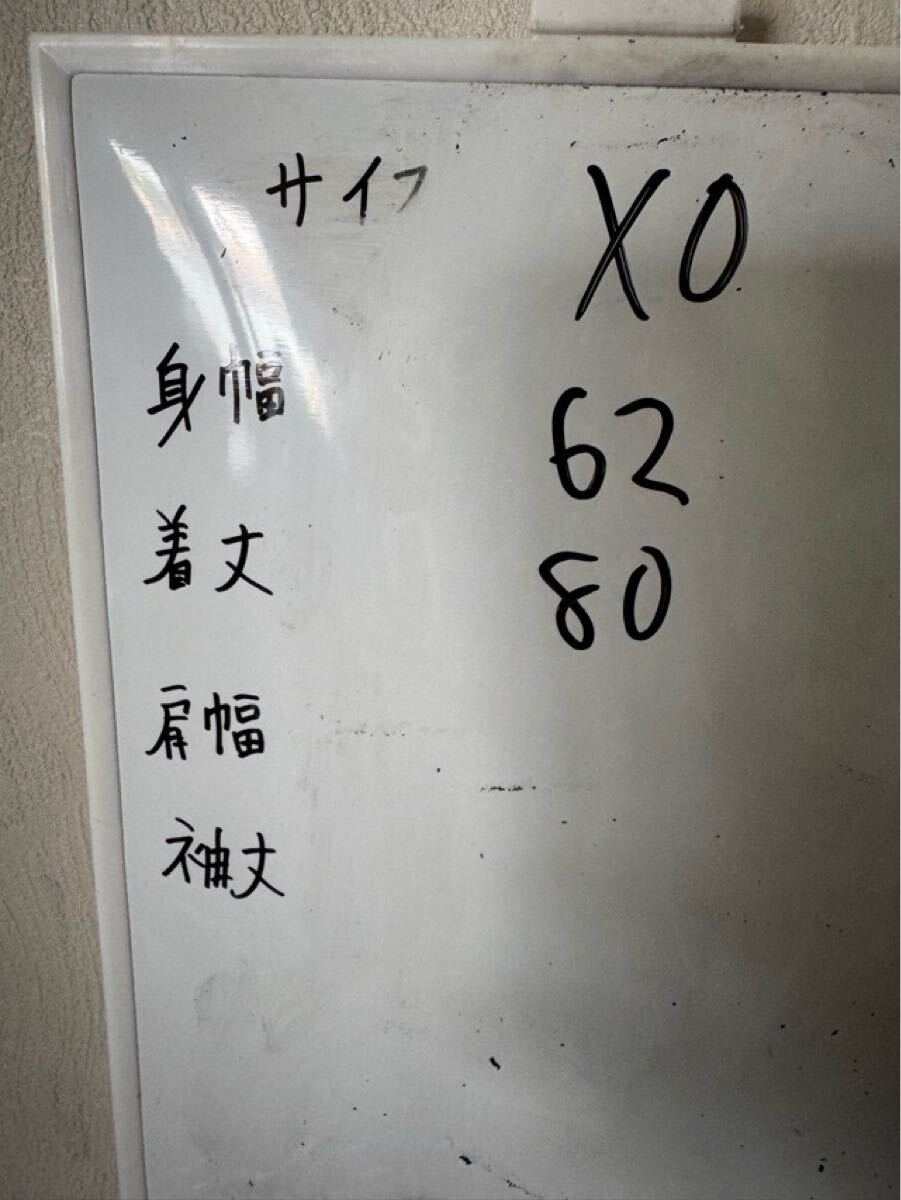 サイズ XO
身幅 62
着丈 80
肩幅
袖丈